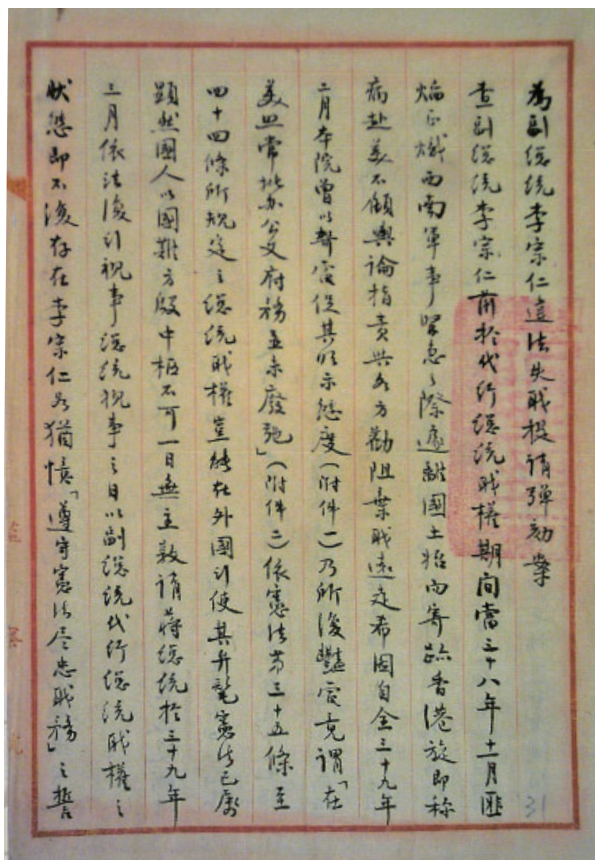 為副總統李宗仁違法失職提請彈劾案
查副總統李宗仁前於代行總統職權期間當三十八年十一月匪
焰正熾西南軍事緊急之際遽離國土始而寄跡香港旋即稱
病赴美不顧輿論指責與各方勸阻棄職遠走希圖自全三十九年
二月本院曾以辭電促其明示態度(附件一)乃所復豔電竟謂「在
美照常批办公文府務並未廢弛」(附件二)依憲法第三十五條至
四十四條所規定之總統職權豈能在外國行使其弁髦憲法已屬
顯然國人以國難方殷中樞不可一日無主敦請蔣總統於三十九年
三月依法復行視事總統視事之日以副總統代行總統職權之
狀態即不復存在李宗仁如猶憶「遵守憲法尽忠職務」之誓
31
監察院